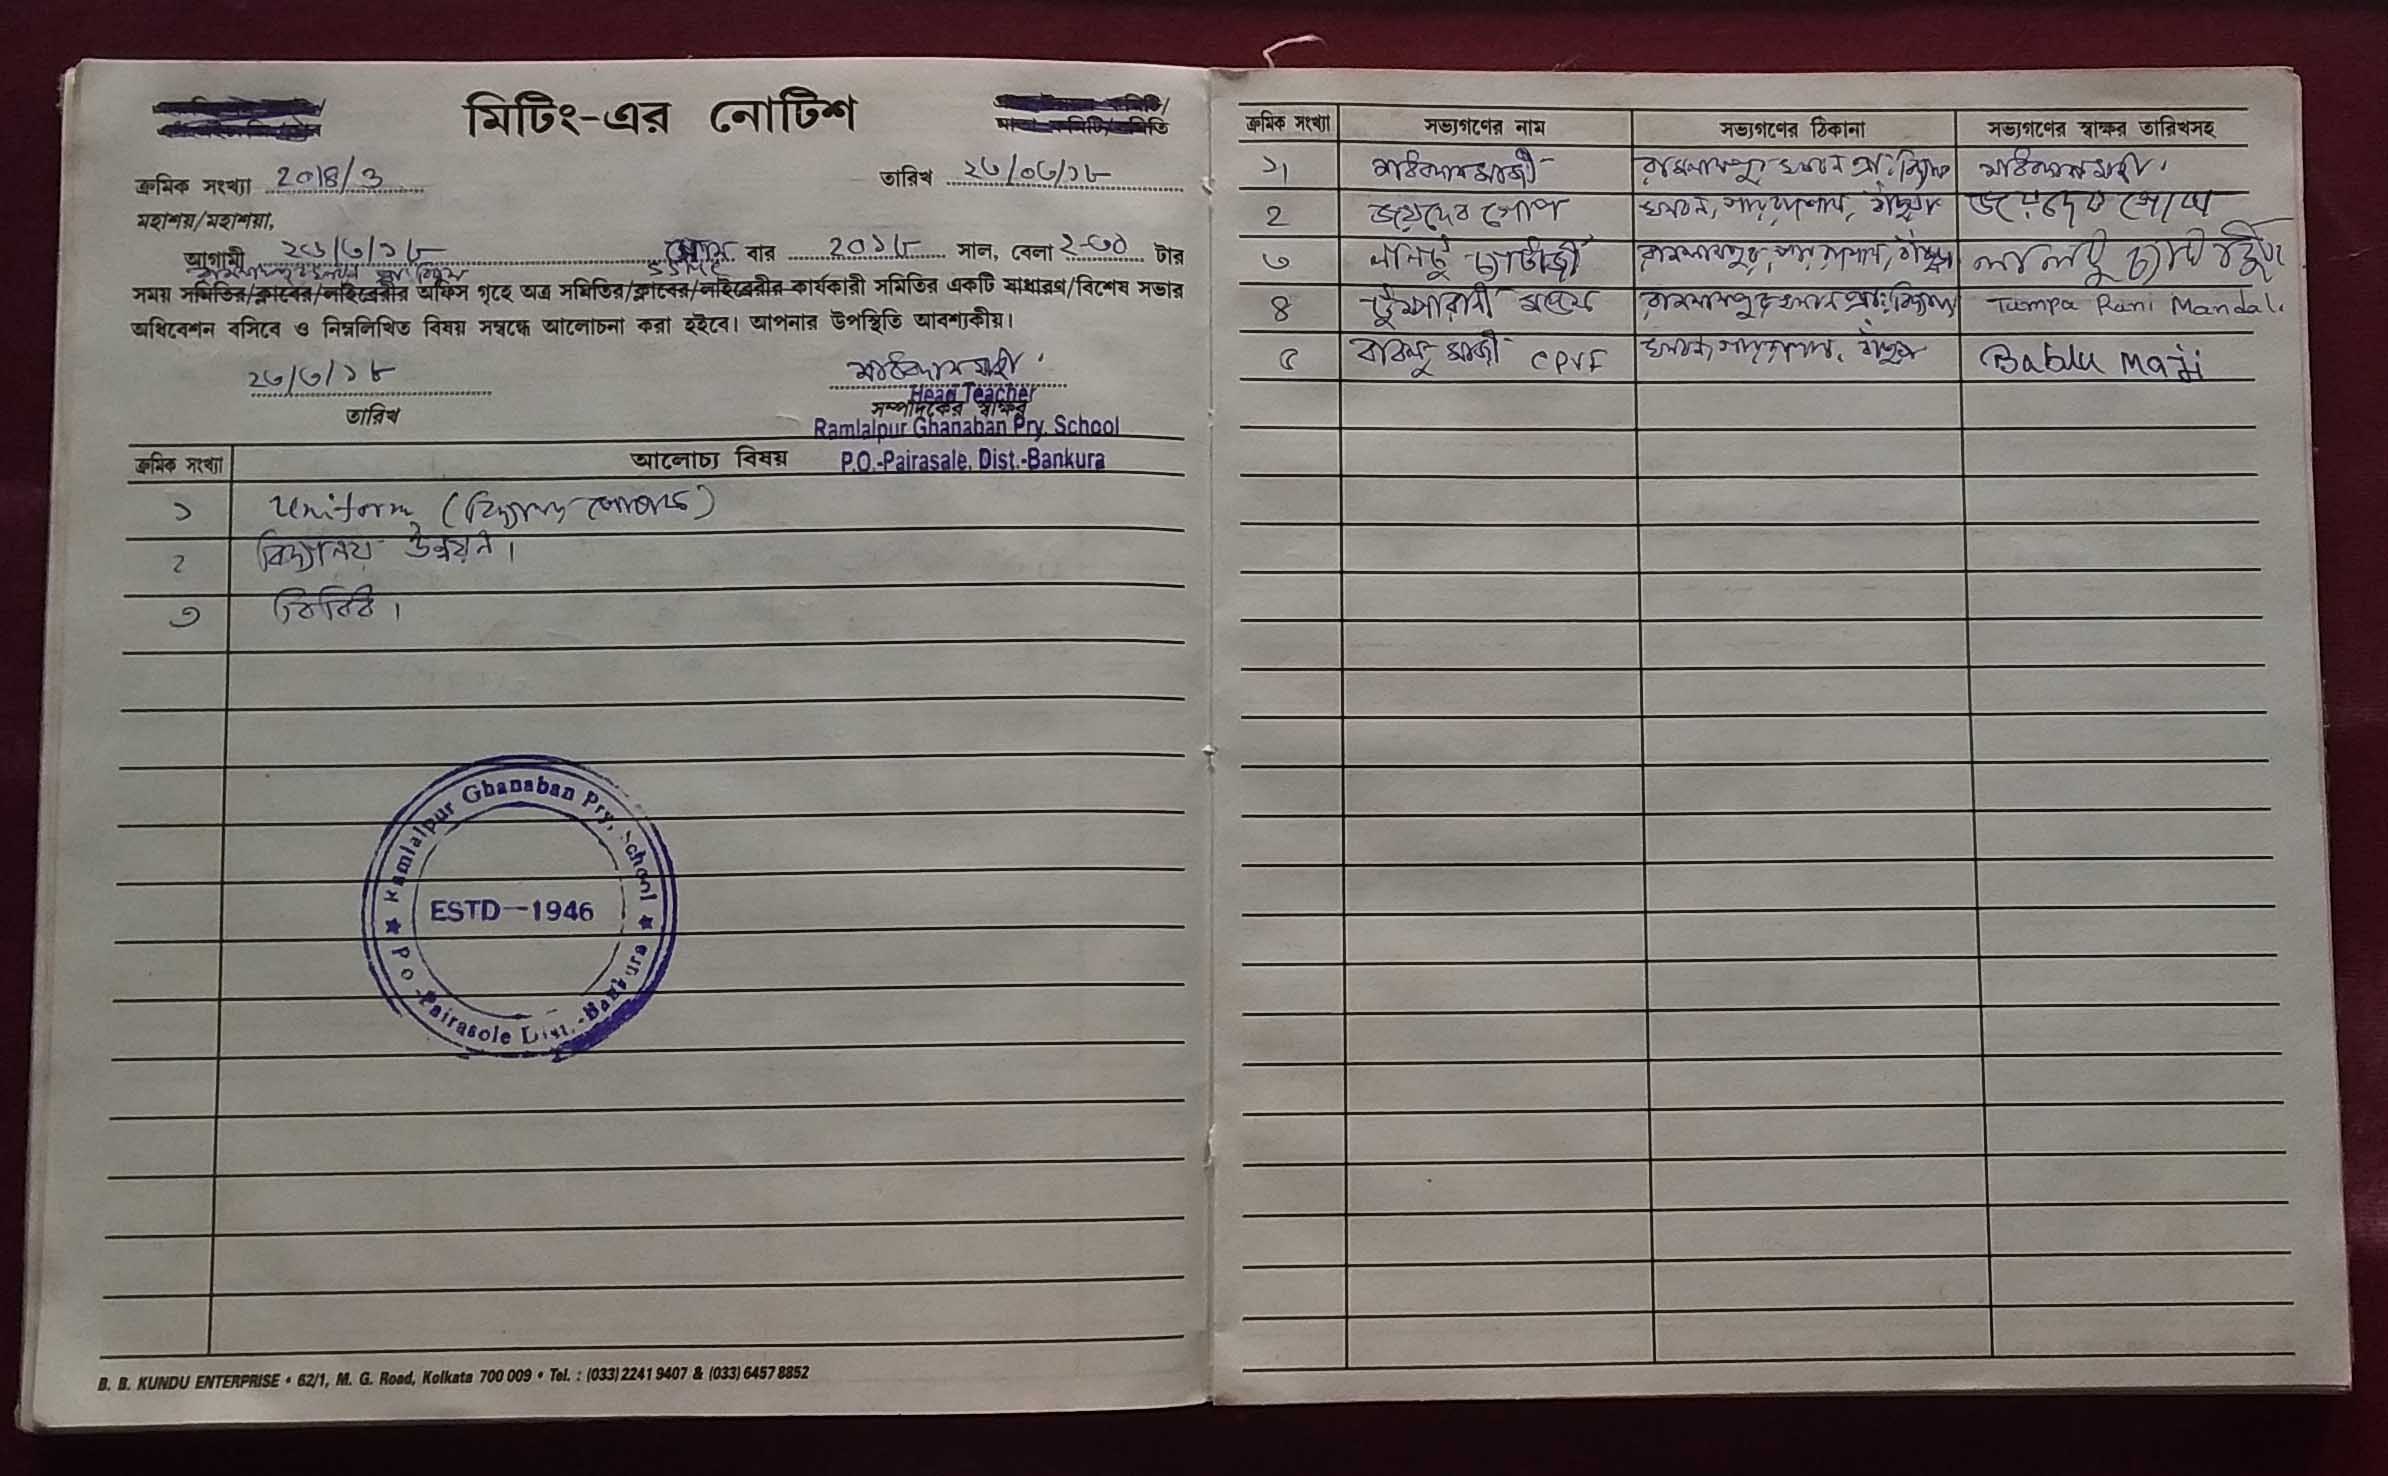 মিটিং-এর নোটিশ
ক্রমিক সংখ্যা 2018/3
তারিখ ২৩/০৩/১৮
মহাশয়/মহাশয়া,
আগামী ২৬/৩/১৮ সোম বার ২০১৮ সাল, বেলা ২-৩০ টার
সময় সমিতির/ক্লাবের/লাইব্রেরীর অফিস গৃহে অত্র সমিতির/ক্লাবের/লাইব্রেরীর কার্যকারী সমিতির একটি সাধারণ/বিশেষ সভার
অধিবেশন বসিবে ও নিম্নলিখিত বিষয় সম্বন্ধে আলোচনা করা হইবে। আপনার উপস্থিতি আবশ্যকীয়।
২৩/৩/১৮
তারিখ
Head Teacher
সম্পাদকের স্বাক্ষর
Ramlalpur Ghanaban Pry. School
P.O.-Pairasale, Dist.-Bankura
ক্রমিক সংখ্যা আলোচ্য বিষয়
১ Uniform (বিদ্যালয় পোষাক)
২ বিদ্যালয় উন্নয়ন।
৩ বিবিধ।
Ramlalpur Ghanaban Pry. School
ESTD-1946
P.O.-Pairasole Dist.-Bankura
B. B. KUNDU ENTERPRISE • 62/1, M. G. Road, Kolkata 700 009 • Tel. : (033) 2241 9407 & (033) 6457 8852
ক্রমিক সংখ্যা সভ্যগণের নাম সভ্যগণের ঠিকানা সভ্যগণের স্বাক্ষর তারিখসহ
১। রামলালপুর ঘনবন প্রাঃ বিদ্যালয়
2 জয়দেব গোপ ঘনবন, পায়রাশোল, বাঁকুড়া জয়দেব গোপ
৩ লালটু চ্যাটার্জী রামলালপুর, পায়রাশোল, বাঁকুড়া লালটু চ্যাটার্জী
8 টুম্পারানী মণ্ডল রামলালপুর ঘনবন প্রাঃ বিদ্যালয় Tumpa Rani Mandal.
৫ বাবলু মাজী CPVF ঘনবন, পায়রাশোল, বাঁকুড়া Bablu Maji